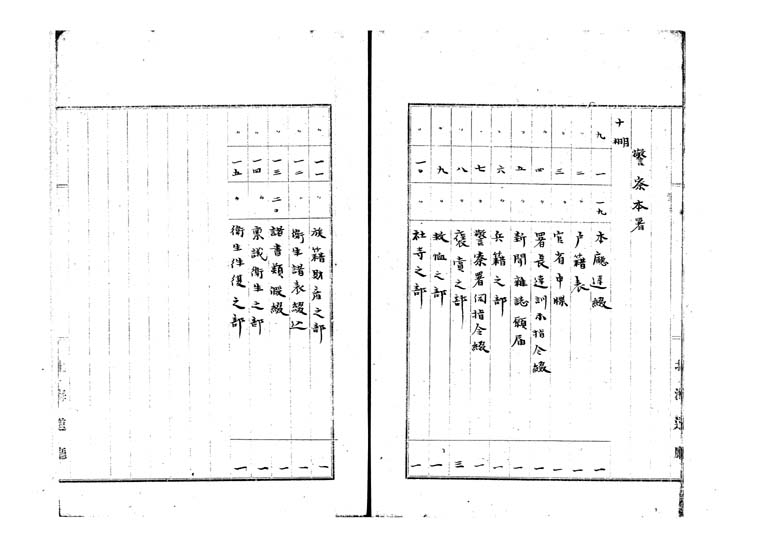 警察本署
十棚
九 一 一九 本廳達綴 一
〃 二 〃 戸籍表 一
〃 三 〃 官省申牒 一
〃 四 〃 署長達訓示指令綴 一
〃 五 〃 新聞雑誌願届 一
〃 六 〃 兵籍之部 一
〃 七 〃 警察署伺指令綴 一
〃 八 〃 褒賞之部 三
〃 九 〃 救恤之部 一
〃 一〇 〃 社寺之部 一
北海道廳
〃 一一 〃 放籍財産之部 一
〃 一二 〃 衛生諸表綴込 一
〃 一三 二〇 諸書類綴 一
〃 一四 〃 稟議衛生之部 一
〃 一五 〃 衛生件復之部 一
北海道廳